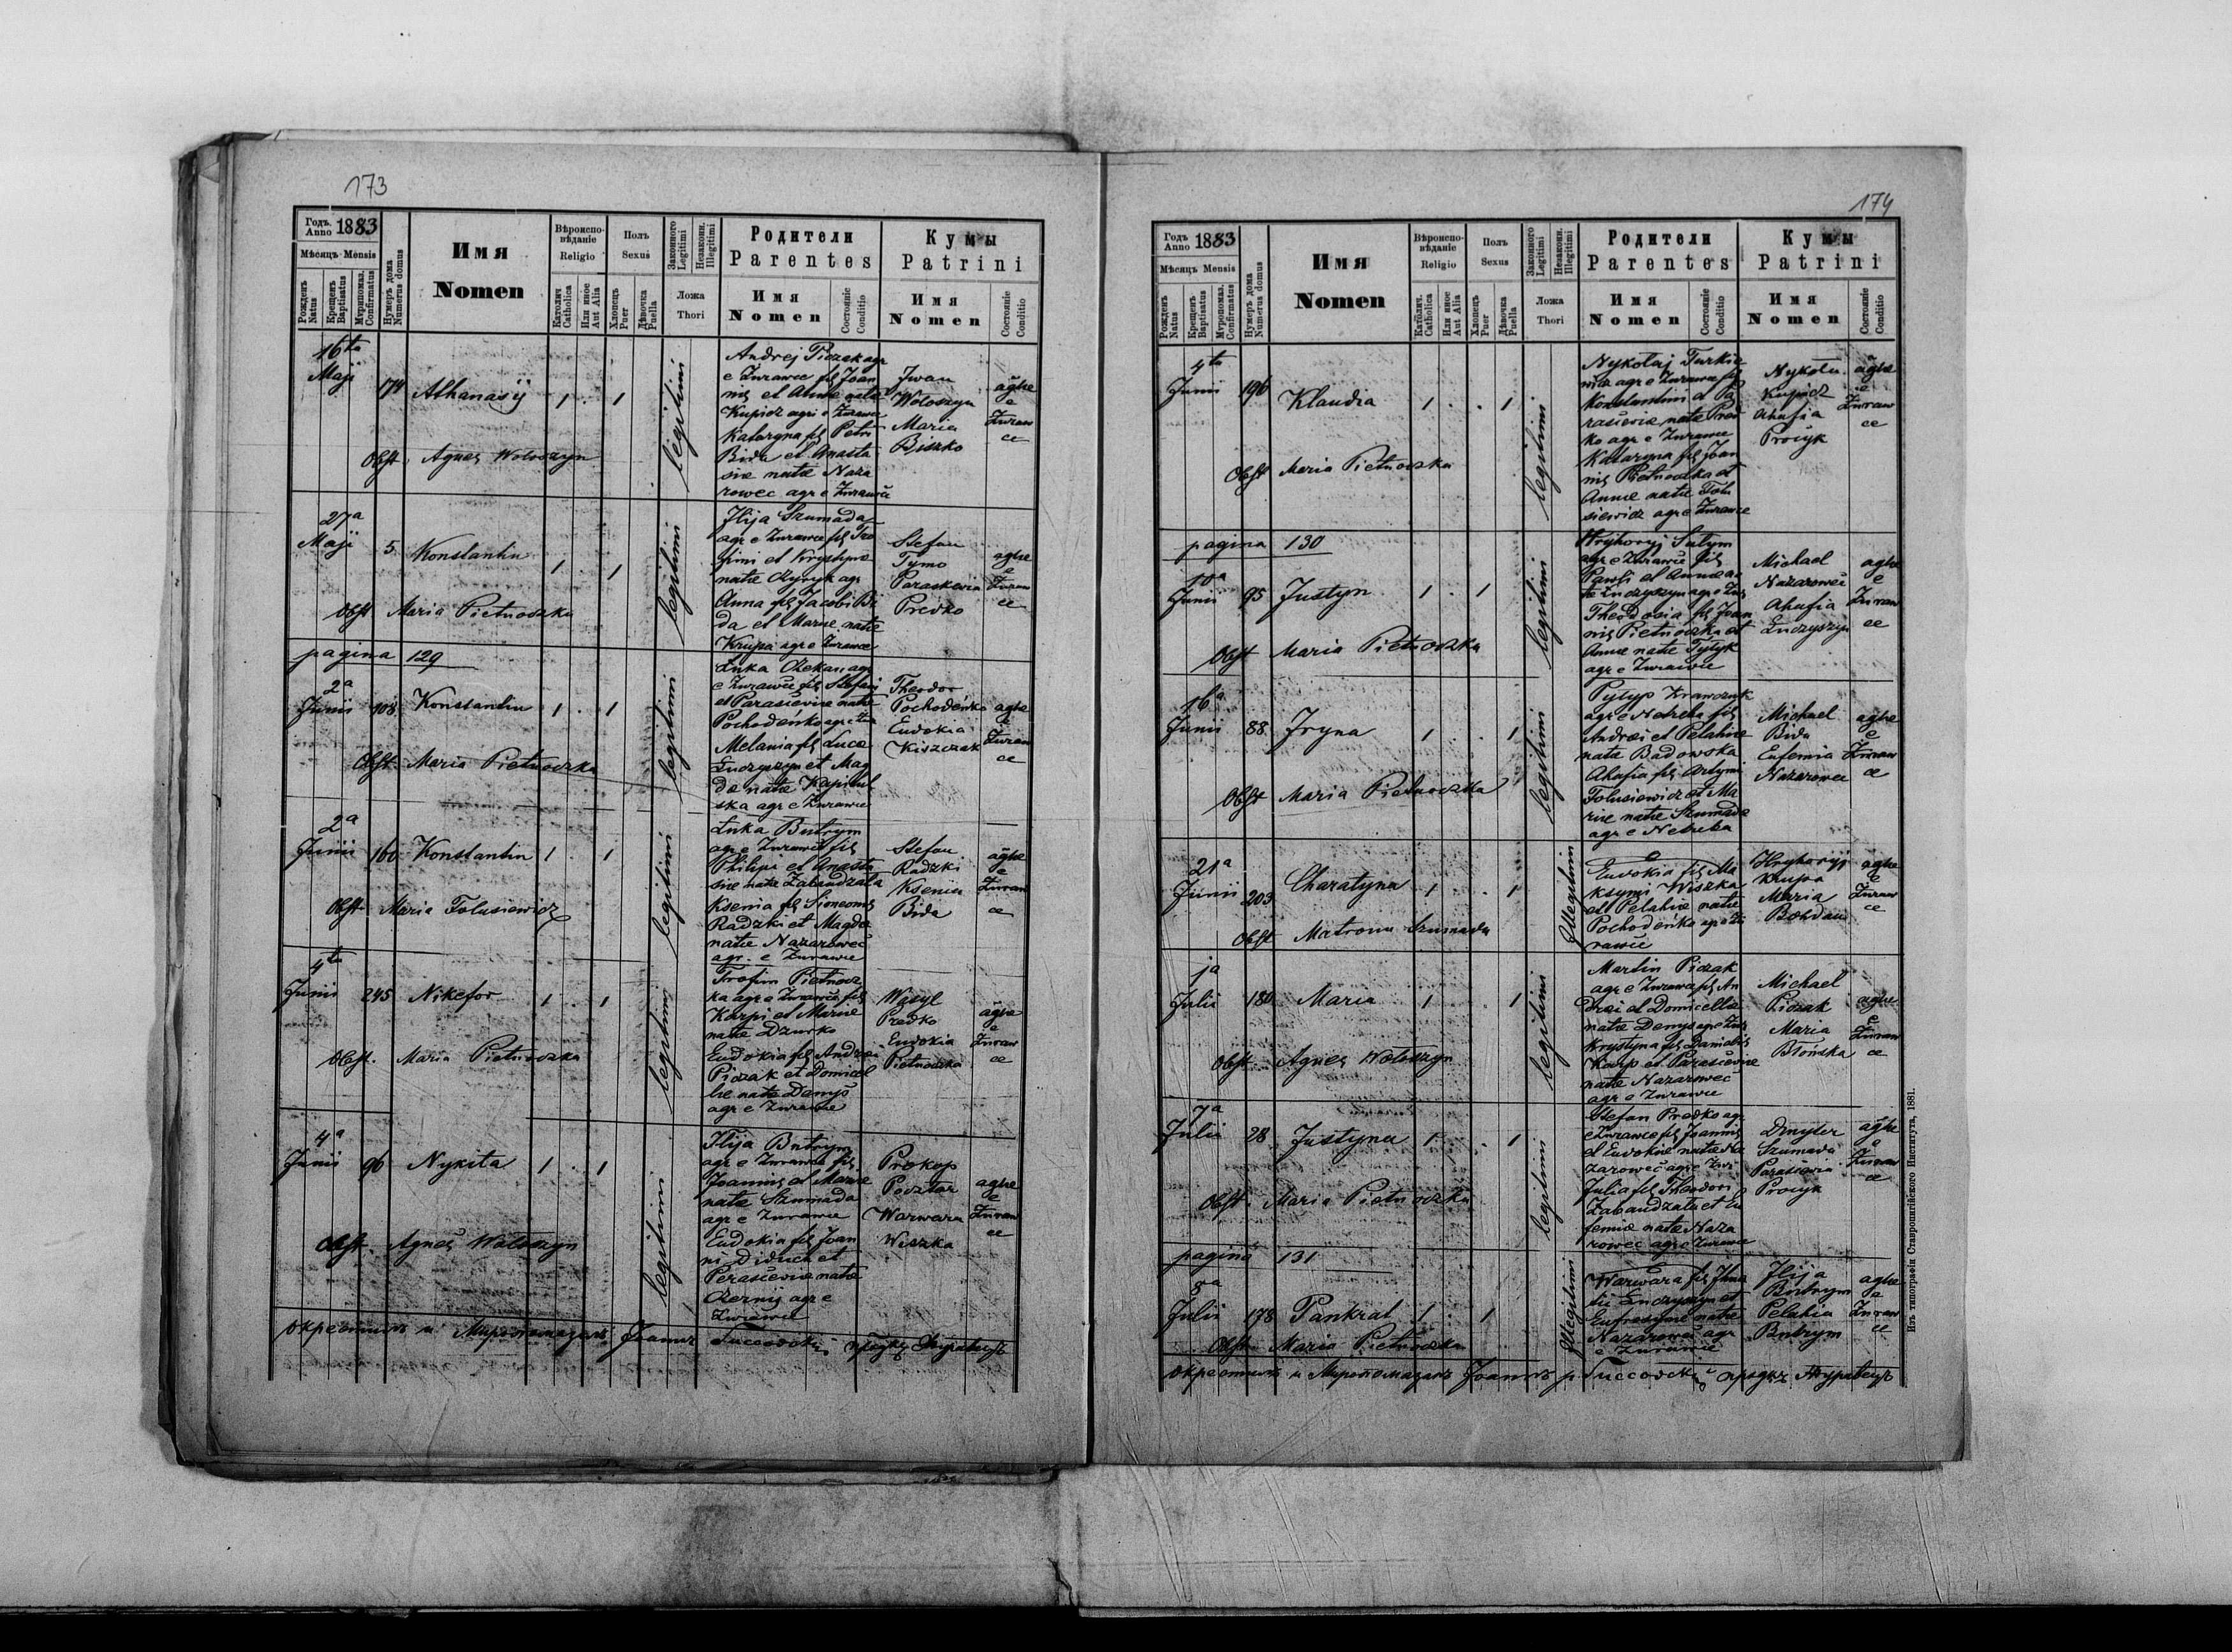 173
Годъ. Anno 1883
Мѣсяцъ Mensis
Рожденъ Natus
Крещенъ Baptisatus
Мѵропомаз. Confirmatus
Нумеръ дома Numerus domus
Имя
Nomen
Вѣроиспо-
вѣданіе
Religio
Католич Catholica
Или иное Aut Alia
Полъ
Sexus
Хлопецъ Puer
Дѣвочка Puella
Законного Legitimi
Незаконн. Illegitimi
Ложа
Thori
Родители
Parentes
Имя
Nomen
Состояніе Conditio
Кумы
Patrini
Имя
Nomen
Состояніе Conditio
16ta
Maji 174 Athanasij 1 . 1
Obst. Agnes Wołoszyn
legitimi
Andrej Piczak agr
e Zurawce fil Joan
nis et Annae nata
Kupicz agri e Zurawce
Kataryna fil Petri
Bida et Anasta
siae natae Naza
rowec agr e Zurawce
Iwan
Wołoszyn
Maria
Biszko
aghae
e
Zuraw
ce
27a
Maji 5 Konstantin 1 . 1
Obst Maria Pietnoczka
legitimi
Ilija Szumada
agr e Zurawce fil Tro
fimi et Krystynae
natae Czyryk agr
Anna fil Jacobi Bi
da et Mariae natae
Krupa agr e Zurawce
Stefan
Tymo
Paraskewia
Predko
aghae
e
Zuraw
ce
pagina 129
2a
Junii 108 Konstantin 1 . 1
Obst. Maria Pietnoczka
legitimi
Łuka Czekan agr
e Zurawce fil Stefani
et Parasiewiae natae
Pochodeńko agr e Zu
Melania fil Lucae
Łuczyszyn et Mag
dae natae Kapinl
ska agr e Zurawce
Theodor
Pochodeńko
Eudokia
Kiszczak
aghae
e
Zuraw
ce
2a
Junii 160 Konstantin 1 . 1
Obst. Maria Tolusiewicz
legitimi
Łuka Butrym
agr e Zurawce fil
Philipi et Anasta
siae natae Zabandzała
Ksenia fil Simeonis
Radzki et Magdae
natae Nazarowec
agr. e Zurawce
Stefan
Radzki
Ksenia
Bida
aghae
e
Zuraw
ce
4ta
Junii 245 Nikefor 1 . 1
Obst. Maria Pietnoczka
legitimi
Trofim Pietnocz
ka agr e Zurawce fil
Karpi et Mariae
natae Dzurko
Eudokia fil Andrei
Piczak et Domicel
lae natae Demys
agr e Zurawce
Wasyl
Predko
Eudokia
Pietnoczka
aghae
e
Zuraw
ce
4a
Junii 96 Nykita 1 . 1
Obst. Agnes Wołoszyn
legitimi
Ilija Butrym
agr e Zurawce fil
Joannis et Mariae
natae Szumada
agr e Zurawce
Eudokia fil Joan
nis Diduch et
Perasiewiae natae
Czernij agr e
Zurawce
Prokop
Pocztar
Warwara
Wiszka
aghae
e
Zuraw
ce
окрестилъ и Миропомазалъ Іоаннъ
174
Годъ Anno 1883
Мѣсяцъ Mensis
Рожденъ Natus
Крещенъ Baptisatus
Мѵропомаз. Confirmatus
Нумеръ дома Numerus domus
Имя
Nomen
Вѣроиспо-
вѣданіе
Religio
Католич. Catholica
Или иное Aut Alia
Полъ
Sexus
Хлопецъ Puer
Дѣвочка Puella
Законного Legitimi
Незаконн. Illegitimi
Ложа
Thori
Родители
Parentes
Имя
Nomen
Состояніе Conditio
Кумы
Patrini
Имя
Nomen
Состояніе Conditio
4ta
Junii 196 Klaudia 1 . . 1
Obst Maria Pietnoczka
legitimi
Nykołaj Turkie
wicz agr e Zurawce fil
Konstantini et Pa
rasiewiae natae Pred
ko agr e Zurawce
Kataryna fil Joan
nis Pietnoczka et
Annae natae Tolu
siewicz agr e Zurawce
Nykoła
Kupicz
Ahafia
Procyk
aghae
e
Zuraw
ce
pagina 130
10a
Junii 95 Justyn 1 . 1
Obst Maria Pietnoczka
legitimi
Hryhoryj Sutym
agr e Zurawce fil
Pawli et Annae na
tae Łuczyszyn agr e Zur
Theodosia fil Joan
nis Pietnoczka et
Annae natae Tytyk
agr e Zurawce
Michael
Nazarowec
Ahafia
Łuczyszyn
aghae
e
Zuraw
ce
16a
Junii 88 Iryna 1 . . 1
Obst Maria Pietnoczka
legitimi
Pylyp Krawczuk
agr e Netreba fil
Andreei et Pelahiae
natae Badowska
Ahafia fil Artymi
Tolusiewicz et Ma
riae natae Szumada
agr e Netreba
Michael
Bida
Eufemia
Nazarowec
aghae
e
Zuraw
ce
21a
Junii 203 Charatyna 1 . . 1
Obst Matrona Szumada
Illegitimi
Eudokia fil Ma
ksymi Wiszka
et Pelahiae natae
Pochodeńko agr e Zu
rawce
Hryhoryj
Krupa
Maria
Bohdan
aghae
e
Zuraw
ce
1a
Julii 180 Maria 1 . . 1
Obst. Agnes Wołoszyn
legitimi
Martin Piczak
agr e Zurawce fil An
drei et Domicellae
natae Demys agr e Zur
Krystyna fil Danielis
Karp et Parasiewiae
natae Nazarowec
agr e Zurawce
Michael
Piczak
Maria
Błońska
aghae
e
Zuraw
ce
7a
Julii 28 Justyna 1 . . 1
Obst. Maria Pietnoczka
legitimi
Stefan Predko agr
e Zurawce fil Joannis
et Eudokiae natae Na
zarowec agr e Zur
Julia fil Theodori
Zabandzała et Eu
femiae natae Naza
rowec agr e Zurawce
Dmyter
Szumada
Parasiewia
Procyk
aghae
e
Zuraw
ce
pagina 131
8a
Julii 178 Pankrat 1 . 1
Obst. Maria Pietnoczka
Illegitimi
Warwara fil Ihna
tii Łuczyszyn et
Eufrosynae natae
Nazarowec agr
e Zurawce
Ilija
Butrym
Pelahia
Butrym
aghae
e
Zuraw
ce
окрестилъ и Миропомазалъ Іоаннъ
Изъ типографіи Ставропигійского Института, 1881.